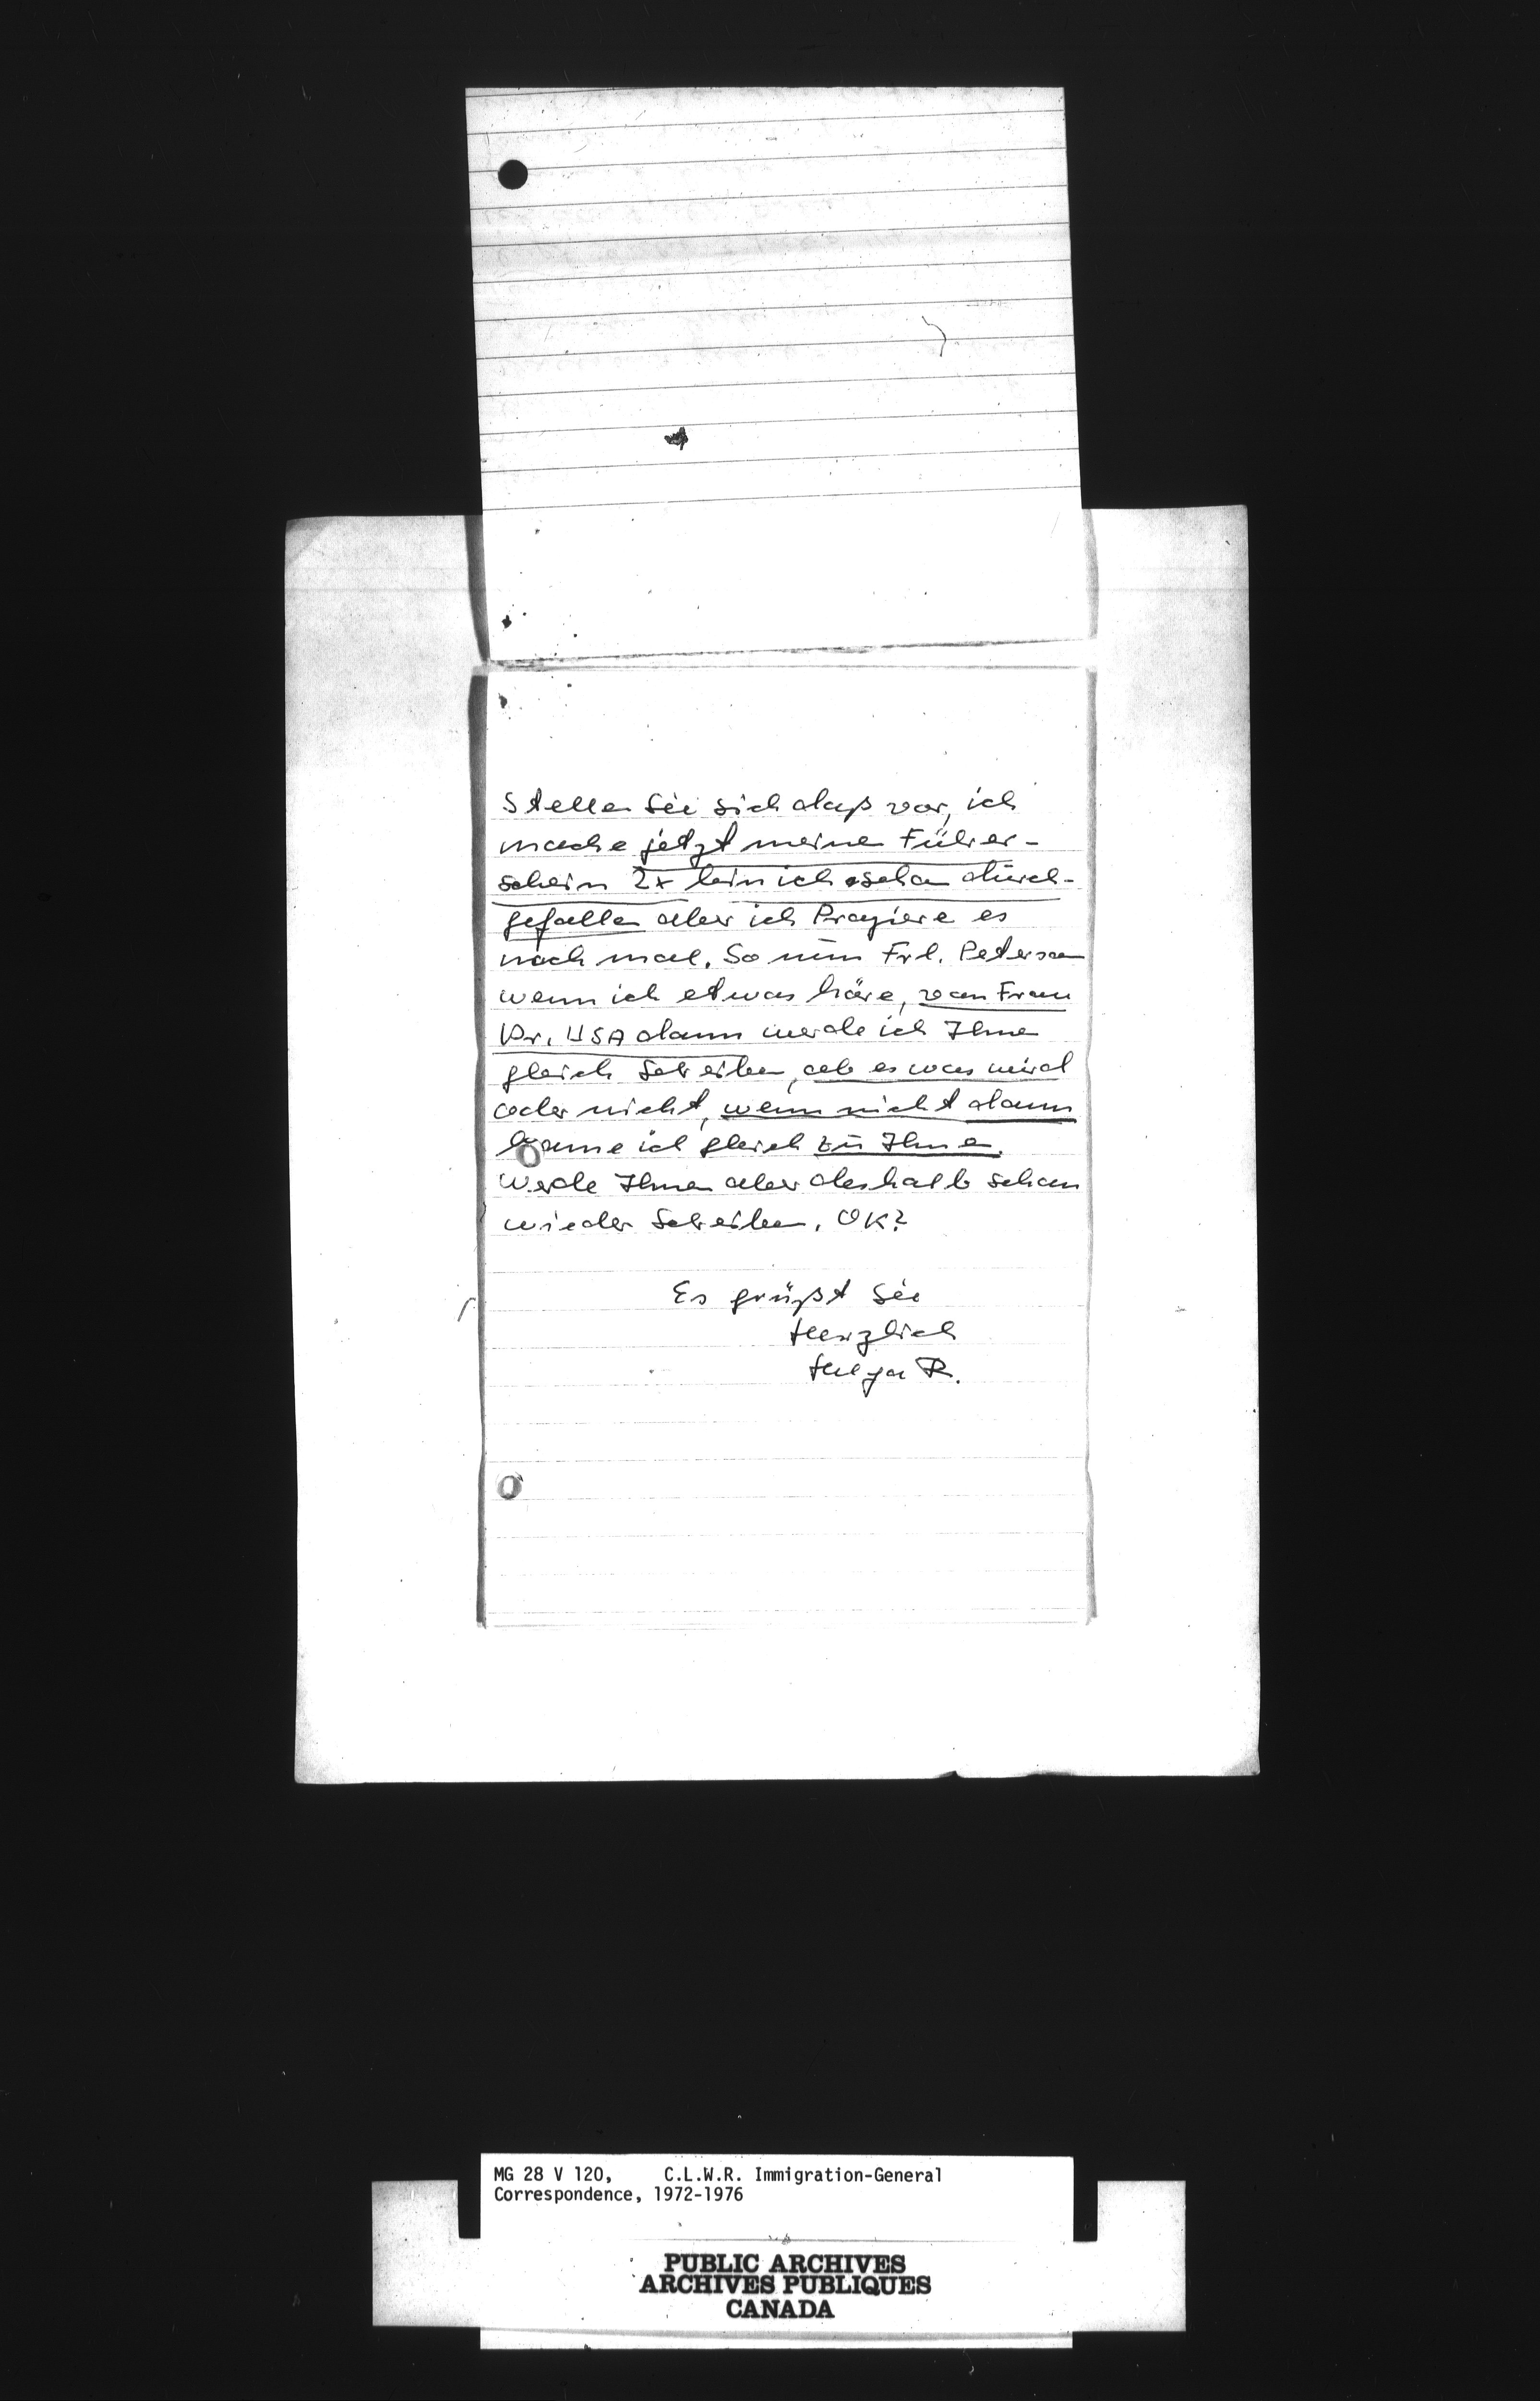 Stellen Sie sich daß vor, ich
mache jetzt meinen Führer-
schein 2x bin ich schon durch-
gefallen aber ich Probiere es
noch mal. So nun Frl. Peterson
wenn ich etwas höre, von Frau
Dr. USA dann werde ich Ihnen
gleich Schreiben, ob es was wird
oder nicht, wenn nicht dann
komme ich gleich zu Ihnen.
Werde Ihnen aber deshalb schon
wieder Schreiben. OK?
Es grüßt Sie
Herzlich
Helga R.
MG 28 V 120, C.L.W.R. Immigration-General
Correspondence, 1972-1976
PUBLIC ARCHIVES
ARCHIVES PUBLIQUES
CANADA